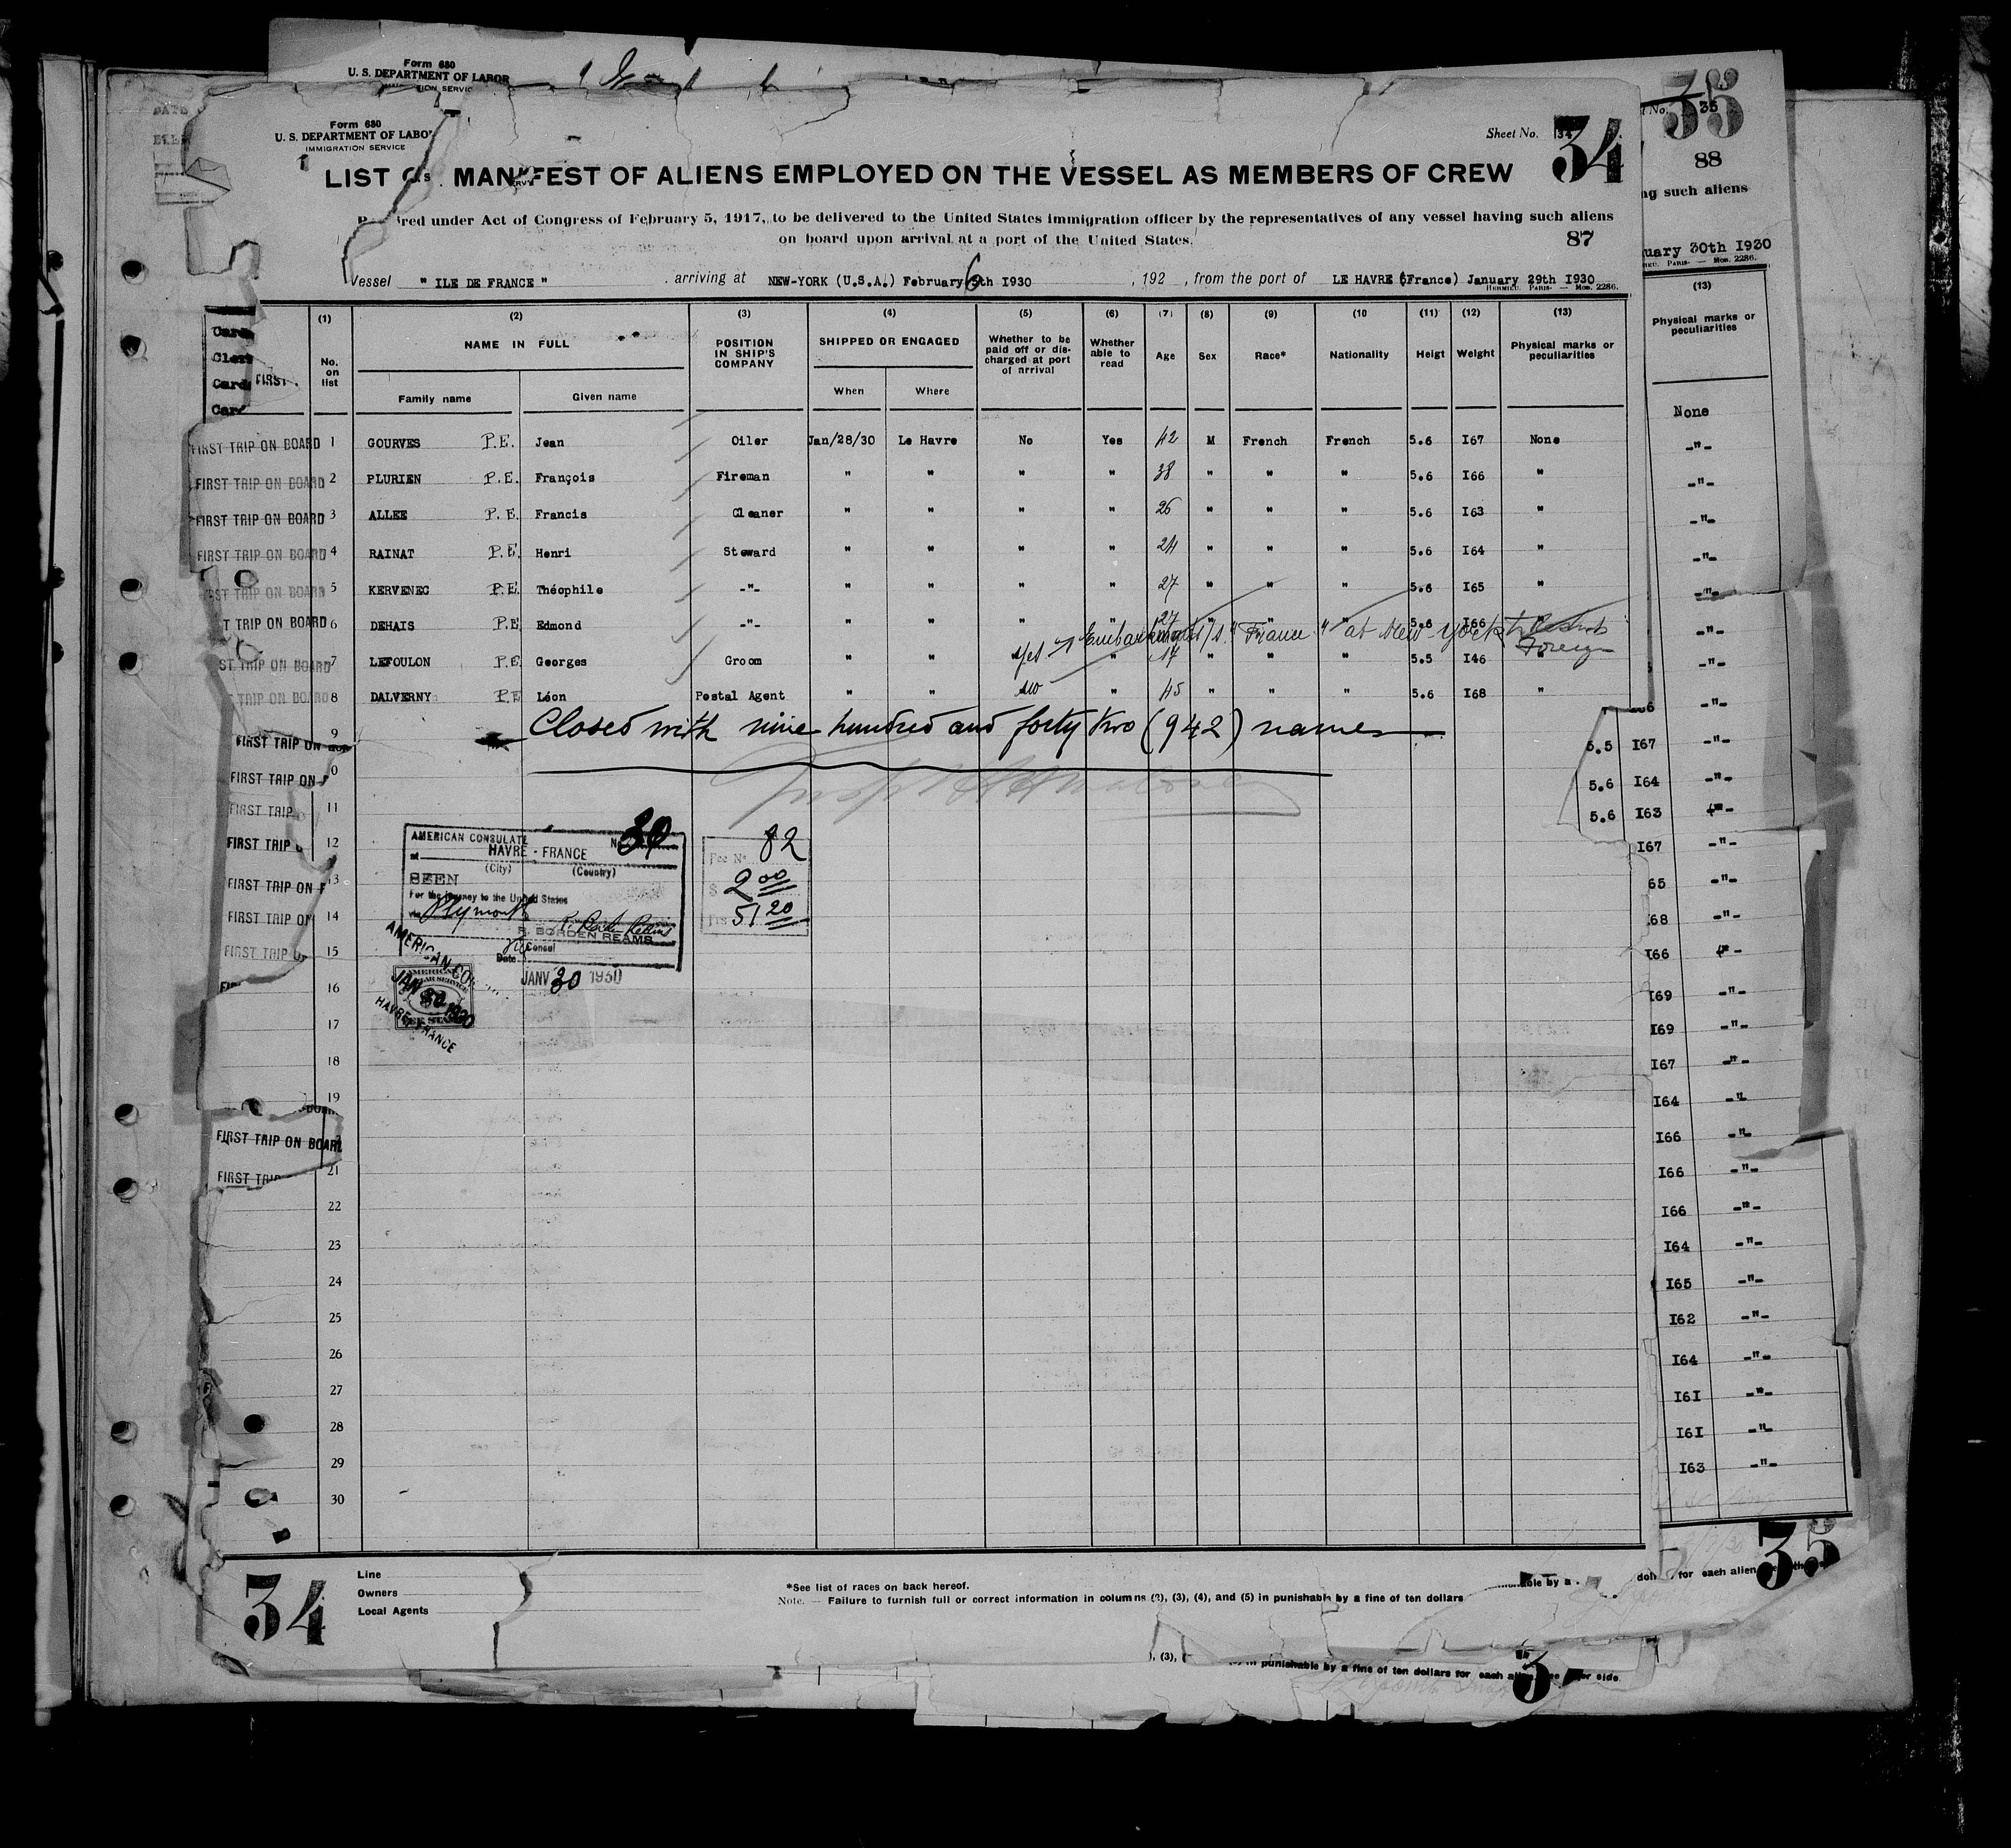 Form 680
U. S. DEPARTMENT OF LABOR
Form 680
U. S. DEPARTMENT OF LABOR
IMMIGRATION SERVICE
Sheet No. 34
34
LIST MANIFEST OF ALIENS EMPLOYED ON THE VESSEL AS MEMBERS OF CREW
Required under Act of Congress of February 5, 1917, to be delivered to the United States immigration officer by the representatives of any vessel having such aliens
on board upon arrival at a port of the United States.
87
Vessel " ILE DE FRANCE " arriving at NEW-YORK (U.S.A.) February 6th I930, 192 , from the port of LE HAVRE (France) January 29th I930
HERMIEU. PARIS. — MOD. 2286.
(1) (2) (3) (4) (5) (6) (7) (8) (9) (10 (11) (12) (13)
No. on list NAME IN FULL POSITION IN SHIP'S COMPANY SHIPPED OR ENGAGED Whether to be paid off or discharged at port of arrival Whether able to read Age Sex Race* Nationality Heigt Weight Physical marks or peculiarities
Family name Given name When Where
FIRST TRIP ON BOARD 1 GOURVES P.E. Jean Oiler Jan/28/30 Le Havre No Yes 42 M French French 5.6 I67 None
FIRST TRIP ON BOARD 2 PLURIEN P.E. François Fireman " " " " 38 " " " 5.6 I66 "
FIRST TRIP ON BOARD 3 ALLEE P.E. Francis Cleaner " " " " 26 " " " 5.6 I63 "
FIRST TRIP ON BOARD 4 RAINAT P.E. Henri Steward " " " " 24 " " " 5.6 I64 "
TRIP ON BOARD 5 KERVENEC P.E. Théophile -"- " " " " 27 " " " 5.6 I65 "
T TRIP ON BOARD 6 DEHAIS P.E. Edmond -"- " " " " 27 " " " 5.6 I66 "
s/s "France" at New York
Foreign
ST TRIP ON BOARD 7 LEFOULON P.E. Georges Groom " " yes " 17 " " " 5.5 I46 "
TRIP ON BOARD 8 DALVERNY P.E. Léon Postal Agent " " no " 45 " " " 5.6 I68 "
9 Closed with nine hundred and forty two (942) names
FIRST TRIP ON
FIRST TRIP ON
FIRST TRIP 11
FIRST TRIP 12
FIRST TRIP ON 13
FIRST TRIP ON 14
FIRST TRIP 15
16
17
18
19
FIRST TRIP ON BOARD
FIRST TRIP 21
22
23
24
25
26
27
28
29
30
AMERICAN CONSULATE No. 39
at HAVRE - FRANCE
(City) (Country)
SEEN
For the journey to the United States
via Plymouth
R. BORDEN REAMS
Consul
Date
JANV 30 1930
Fee No 82
$ 2 00
Frs 51 20
AMERICAN
JAN 30 1930
HAVRE, FRANCE
34
Line
Owners
Local Agents
*See list of races on back hereof.
Note. — Failure to furnish full or correct information in columns (2), (3), (4), and (5) in punishable by a fine of ten dollars
for each alien
punishable by a fine of ten dollars for each
35
35
88
ng such aliens
uary 30th I930
PARIS. — MOD. 2286.
(13)
Physical marks or peculiarities
None
-"-
-"-
-"-
-"-
-"-
-"-
-"-
-"-
5.5 I67 -"-
5.6 I64 -"-
5.6 I63 -"-
I67 -"-
65 -"-
68 -"-
I66 -"-
I69 -"-
I69 -"-
I67 -"-
I64 -"-
I66 -"-
I66 -"-
I66 -"-
I64 -"-
I65 -"-
I62 -"-
I64 -"-
I6I -"-
I6I -"-
I63 -"-
35
3